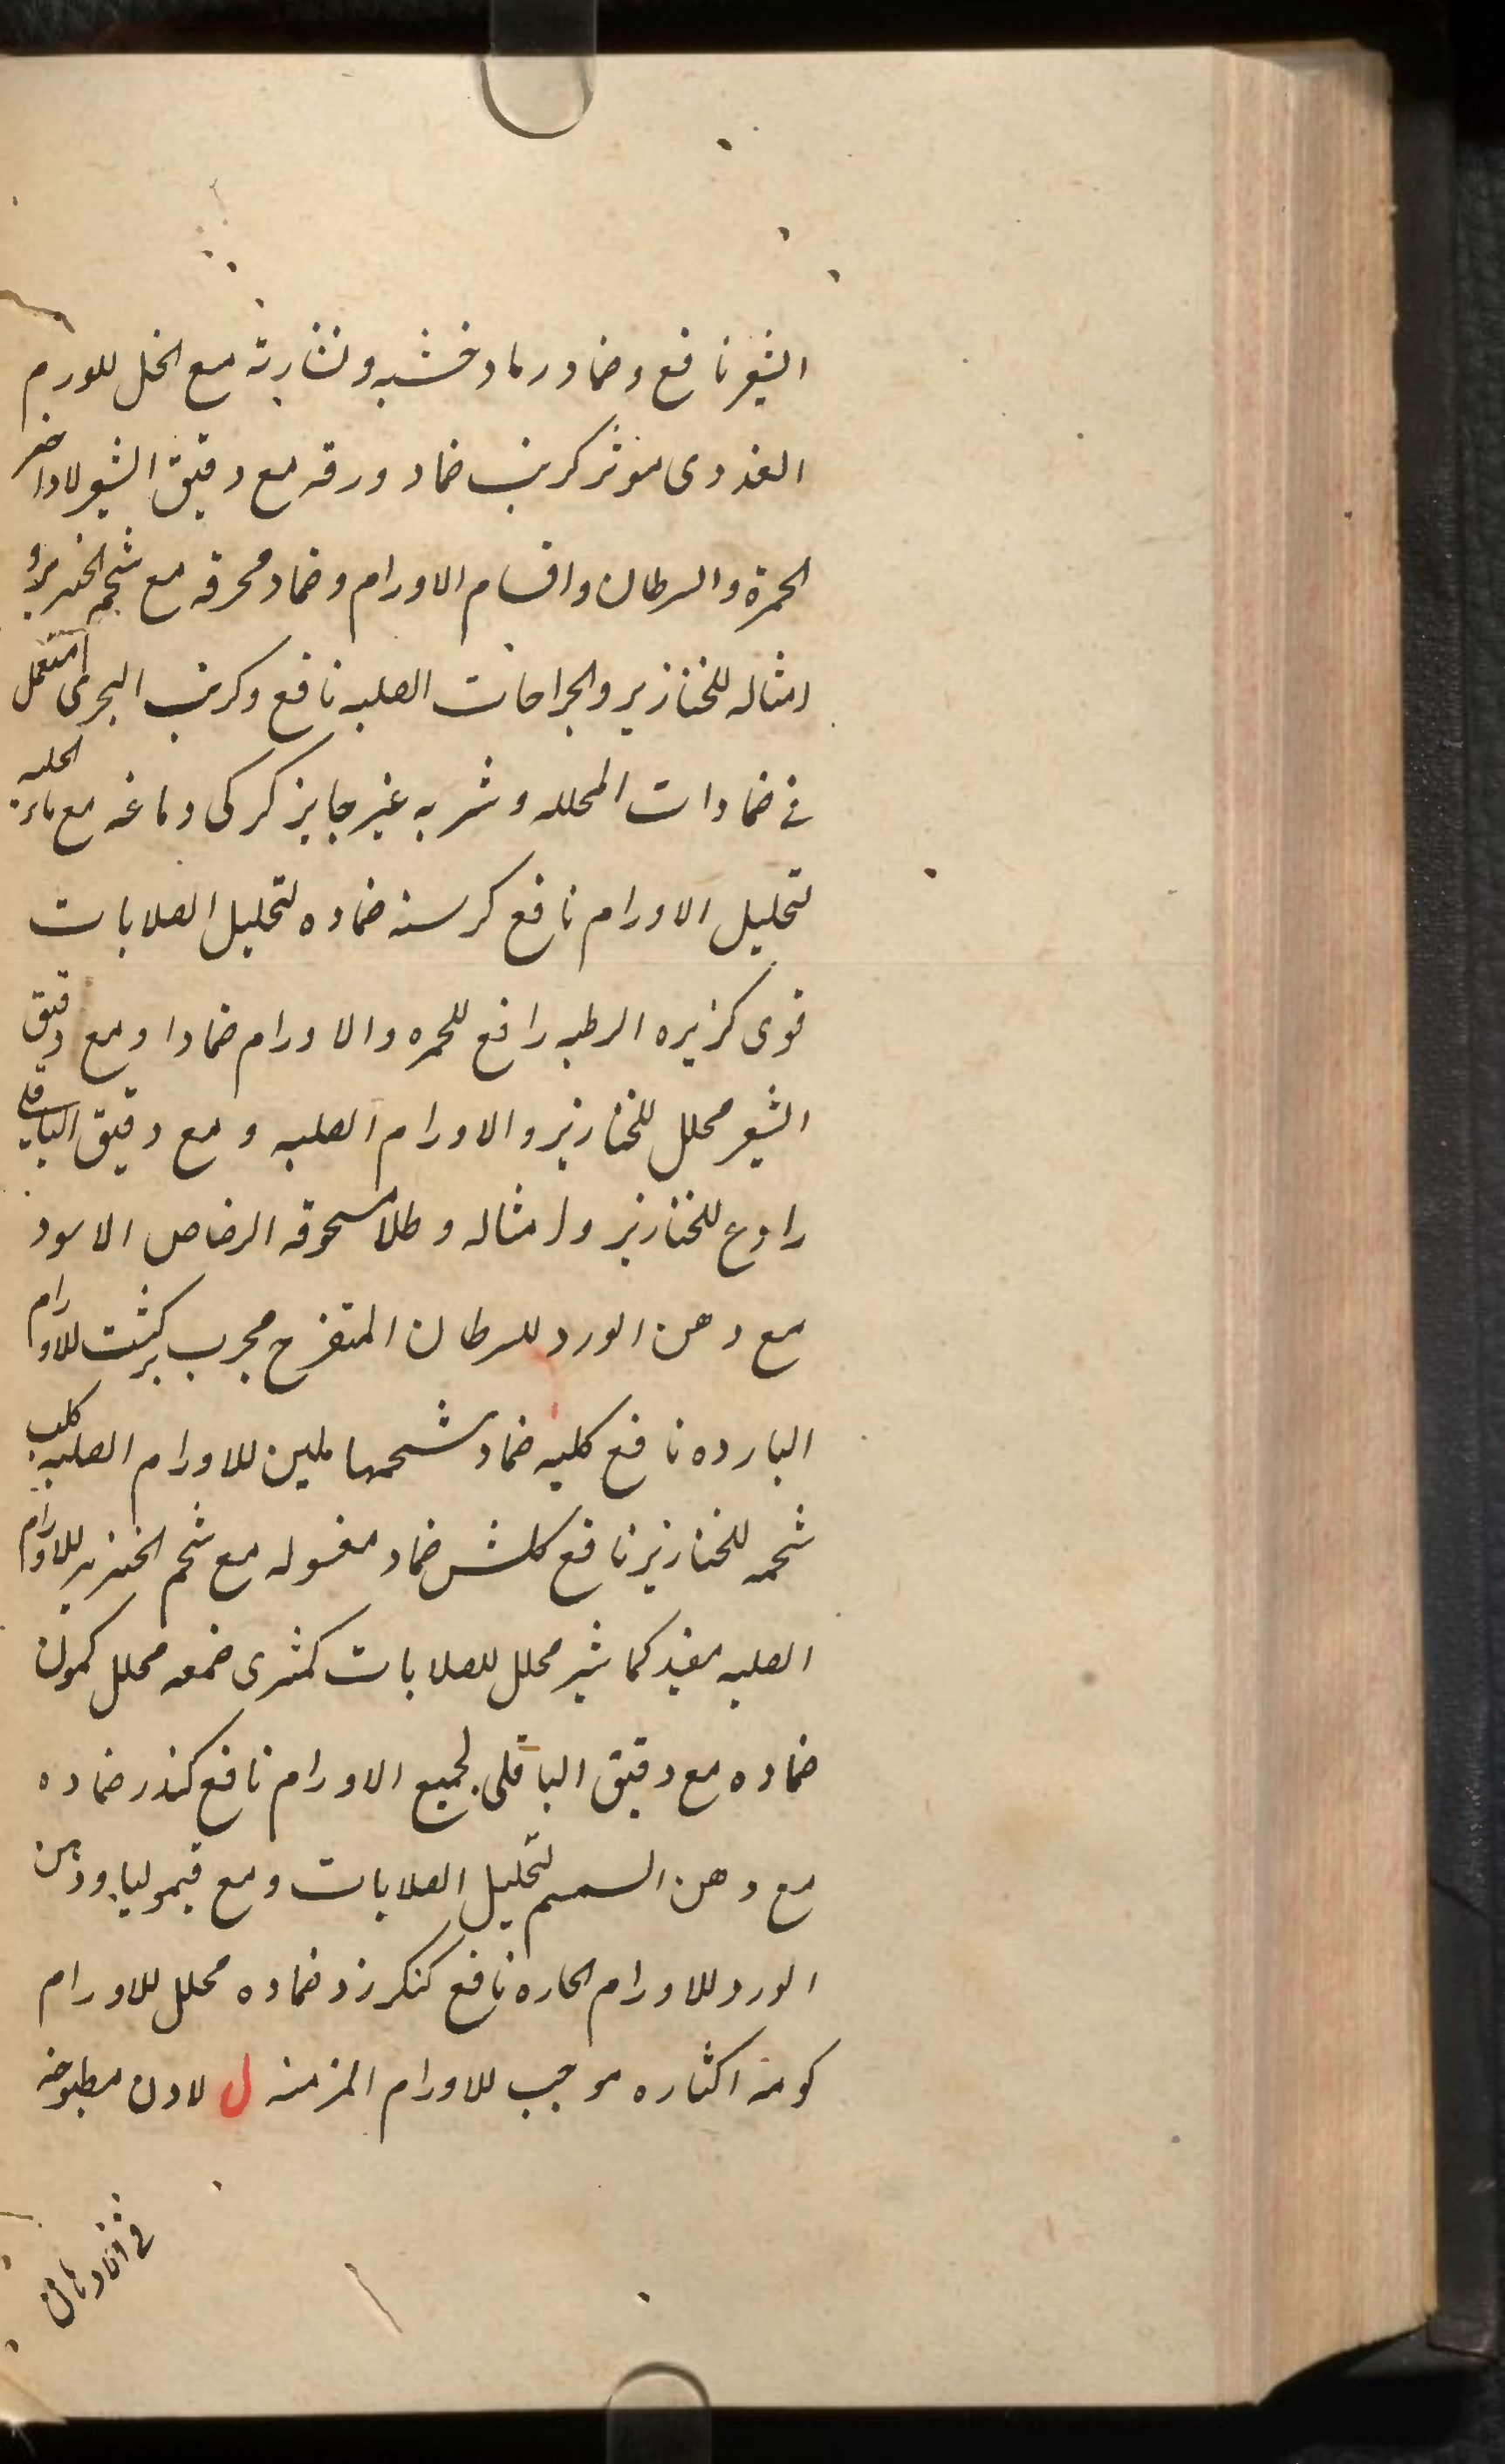 الشعير نافع وضماد رماد خشبه ونشارته مع الخل للورم
الغددى موثر كرنب ضماد ورقه مع دقيق الشعير لاداخر
الحمرة والسرطان واقسام الاورام وضماد محرقه مع شحم الخنزير و
امثاله للخنازير والجراحات الصلبه نافع وكرنب البحرى مستعمل
فى ضمادات المحلله وشربه غير جايز كركى دماغه مع ماء الحلبه
لتحليل الاورام نافع كرسنه ضماده لتحليل الصلابات
قوى كزبره الرطبه رافع للحمره والاورام ضمادا ومع دقيق
الشعير محلل للخنازير والاورام الصلبه و مع دقيق الباقلى
رادع للخنازير وامثاله وطلا مسحوقه الرصاص الاسود
مع دهن الورد للسرطان المتقرح مجرب كشت بركشت للاورام
البارده نافع كليه ضماد شحمها ملين للاورام الصلبه كلب
شحمه للخنازير نافع كلس ضماد مغسوله مع شحم الخنزير للاورام
الصلبه مفيد كماشير محلل للصلابات كمثرى ضمغه محلل كمون
ضماده مع دقيق الباقلى لجميع الاورام نافع كندر ضماده
مع دهن السمسم لتحليل الصلابات ومع قيموليا ودهن
الورد للاورام الحاره نافع كنكرزد ضماده محلل للاورام
كومه اكثاره موجب للاورام المزمنه ل لادن مطبوخه